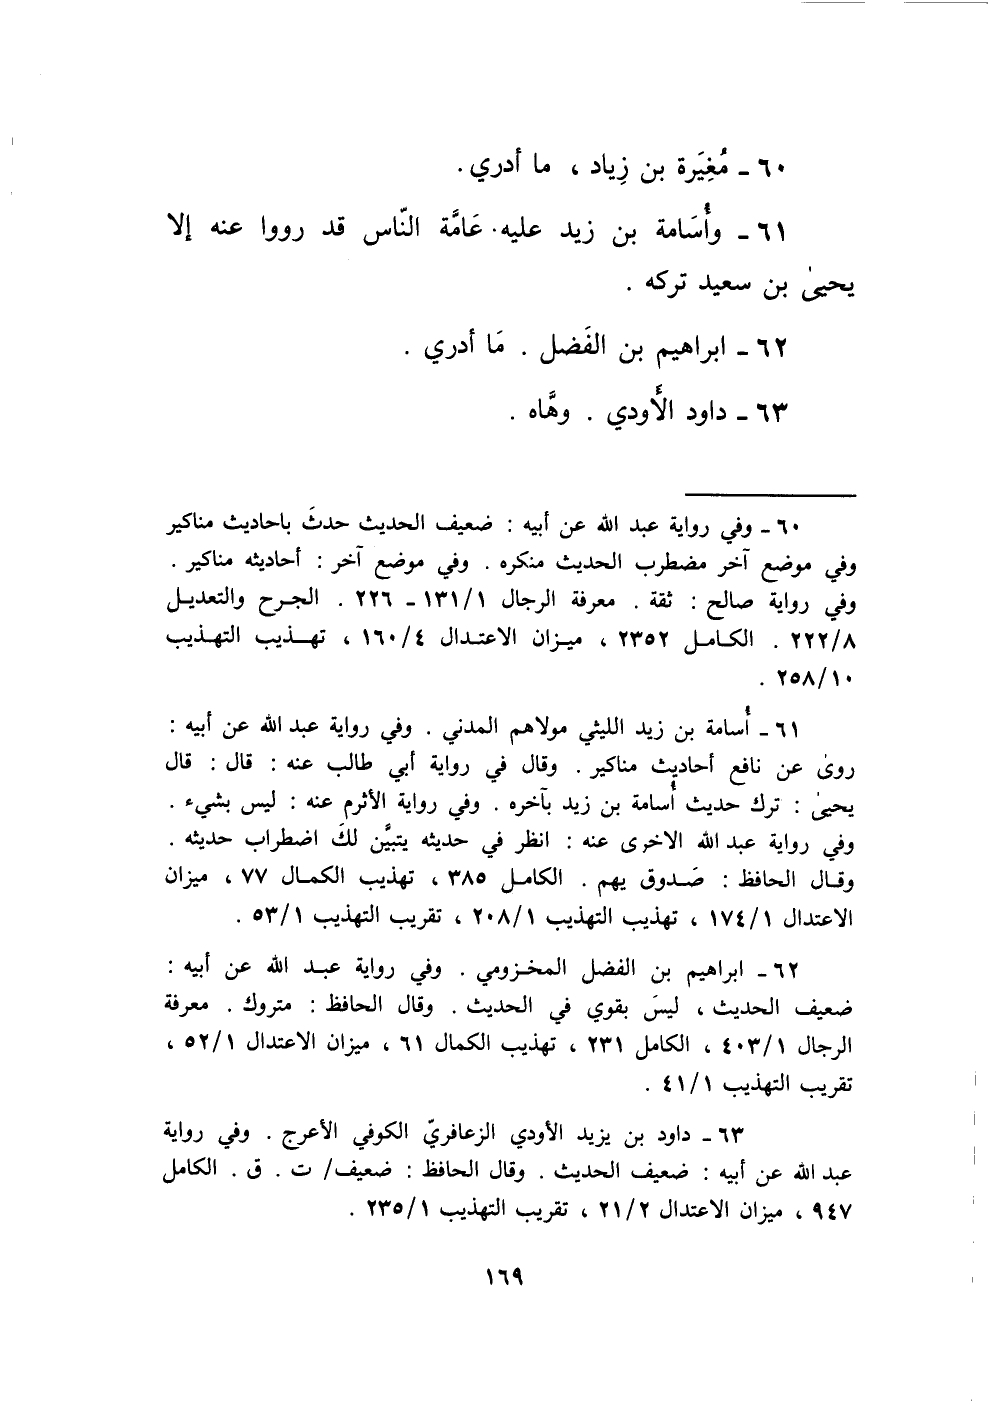 ٦٠ - مُغِيَرة بن زِياد ، ما أدري .
٦١ - وأُسَامة بن زيد عليه . عَامَّة النّاس قد رووا عنه إلا
يحيىٰ بن سعيد تركه .
٦٢ - ابراهيم بن الفَضل . مَا أدري .
٦٣ - داود الأَودي . وهَّاه .
٦٠ - وفي رواية عبد الله عن أبيه : ضعيف الحديث حدثَ باحاديث مناكير
وفي موضع آخر مضطرب الحديث منكره . وفي موضع آخر : أحاديثه مناكير .
وفي رواية صالح : ثقة . معرفة الرجال ١/ ١٣١ - ٢٢٦ . الجرح والتعديل
٢٢٢/٨ . الكامل ٢٣٥٢ ، ميزان الاعتدال ١٦٠/٤ ، تهذيب التهذيب
٢٥٨/١٠ .
٦١ - أُسامة بن زيد الليثي مولاهم المدني . وفي رواية عبد الله عن أبيه :
روىٰ عن نافع أحاديث مناكير . وقال في رواية أبي طالب عنه : قال : قال
يحيىٰ : ترك حديث أُسامة بن زيد بآخره . وفي رواية الأثرم عنه : ليس بشيء .
وفي رواية عبد الله الاخرى عنه : انظر في حديثه يتبيَّن لكَ اضطراب حديثه .
وقال الحافظ : صَدوق يهم . الكامل ٣٨٥ ، تهذيب الكمال ٧٧ ، ميزان
الاعتدال ١٧٤/١ ، تهذيب التهذيب ٢٠٨/١ ، تقريب التهذيب ٥٣/١ .
٦٢ - ابراهيم بن الفضل المخزومي . وفي رواية عبد الله عن أبيه :
ضعيف الحديث ، ليسَ بقوي في الحديث . وقال الحافظ : متروك . معرفة
الرجال ٤٠٣/١ ، الكامل ٢٣١ ، تهذيب الكمال ٦١ ، ميزان الاعتدال ٥٢/١ ،
تقريب التهذيب ٤١/١ .
٦٣ - داود بن يزيد الأودي الزعافريّ الكوفي الأعرج . وفي رواية
عبد الله عن أبيه : ضعيف الحديث . وقال الحافظ : ضعيف/ ت . ق . الكامل
٩٤٧ ، ميزان الاعتدال ٢١/٢ ، تقريب التهذيب ٢٣٥/١ .
١٦٩